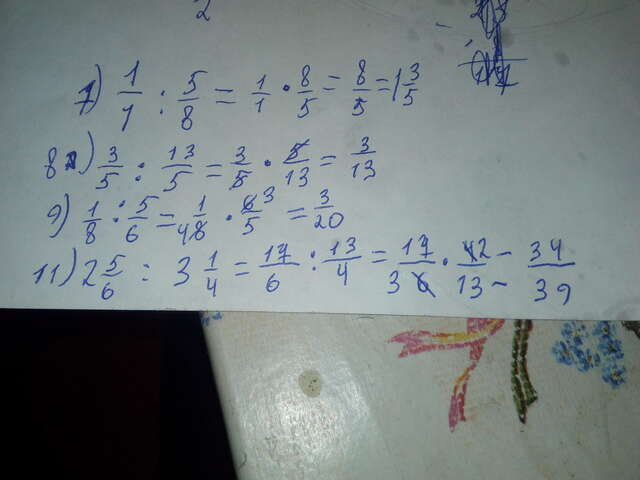 2
7) 1/1 : 5/8 = 1/1 · 8/5 = 8/5 = 1 3/5
8) 3/5 : 13/5 = 3/5 · 5/13 = 3/13
9) 1/8 : 5/6 = 1/48 · 63/5 = 3/20
11) 2 5/6 : 3 1/4 = 17/6 : 13/4 = 17/36 · 42/13 - 34/39